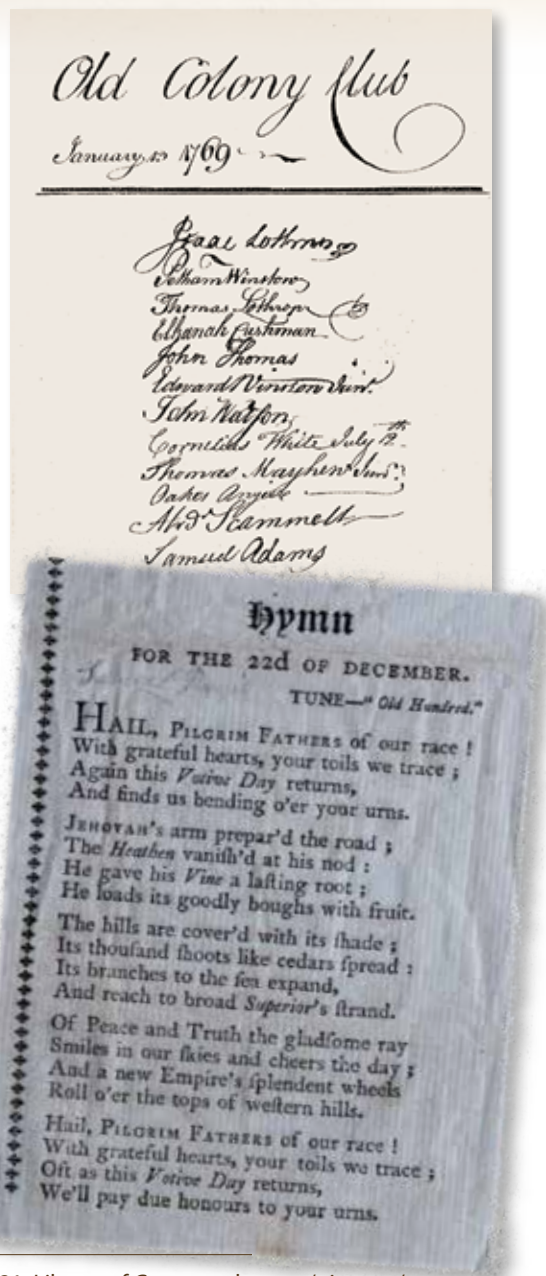 Old Colony Club
January 1769
Isaac Lothrop
Pelham Winslow
Thomas Lothrop
Elkanah Cushman
John Thomas
Edward Winslow Junr.
John Watson
Cornelius White July 12th
Thomas Mayhew Junr.
Oakes Angier
Alexdr Scammell
Samuel Adams
Hymn
FOR THE 22d OF DECEMBER.
TUNE—"Old Hundred."
HAIL, PILGRIM FATHERS of our race !
With grateful hearts, your toils we trace ;
Again this Votive Day returns,
And finds us bending o'er your urns.
JEHOVAH's arm prepar'd the road ;
The Heathen vaniſh'd at his nod :
He gave his Vine a laſting root ;
He loads its goodly boughs with fruit.
The hills are cover'd with its ſhade ;
Its thouſand ſhoots like cedars ſpread :
Its branches to the ſea expand,
And reach to broad Superior's ſtrand.
Of Peace and Truth the gladſome ray
Smiles in our ſkies and cheers the day ;
And a new Empire's ſplendent wheels
Roll o'er the tops of weſtern hills.
Hail, PILGRIM FATHERS of our race !
With grateful hearts, your toils we trace ;
Oft as this Votive Day returns,
We'll pay due honours to your urns.